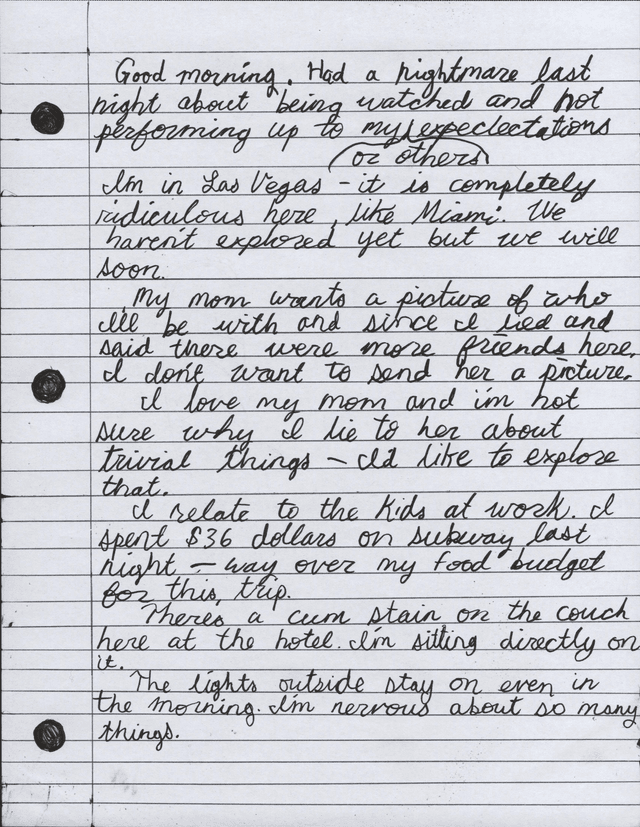 Good morning. Had a nightmare last
night about being watched and not
performing up to my expeclectations
or others
I'm in Las Vegas - it is completely
ridiculous here, like Miami. We
haven't explored yet but we will
soon.
My mom wants a picture of who
I'll be with and since I lied and
said there were more friends here,
I don't want to send her a picture.
I love my mom and i'm not
sure why I lie to her about
trivial things - I'd like to explore
that.
I relate to the kids at work. I
spent $36 dollars on subway last
night - way over my food budget
for this trip.
There's a cum stain on the couch
here at the hotel. I'm sitting directly on
it.
The lights outside stay on even in
the morning. I'm nervous about so many
things.